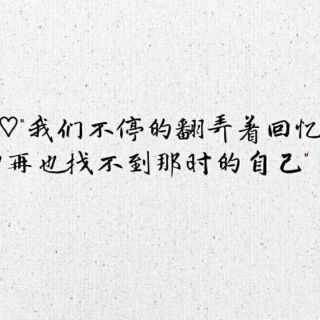 ♡"我们不停的翻弄着回忆
再也找不到那时的自己"